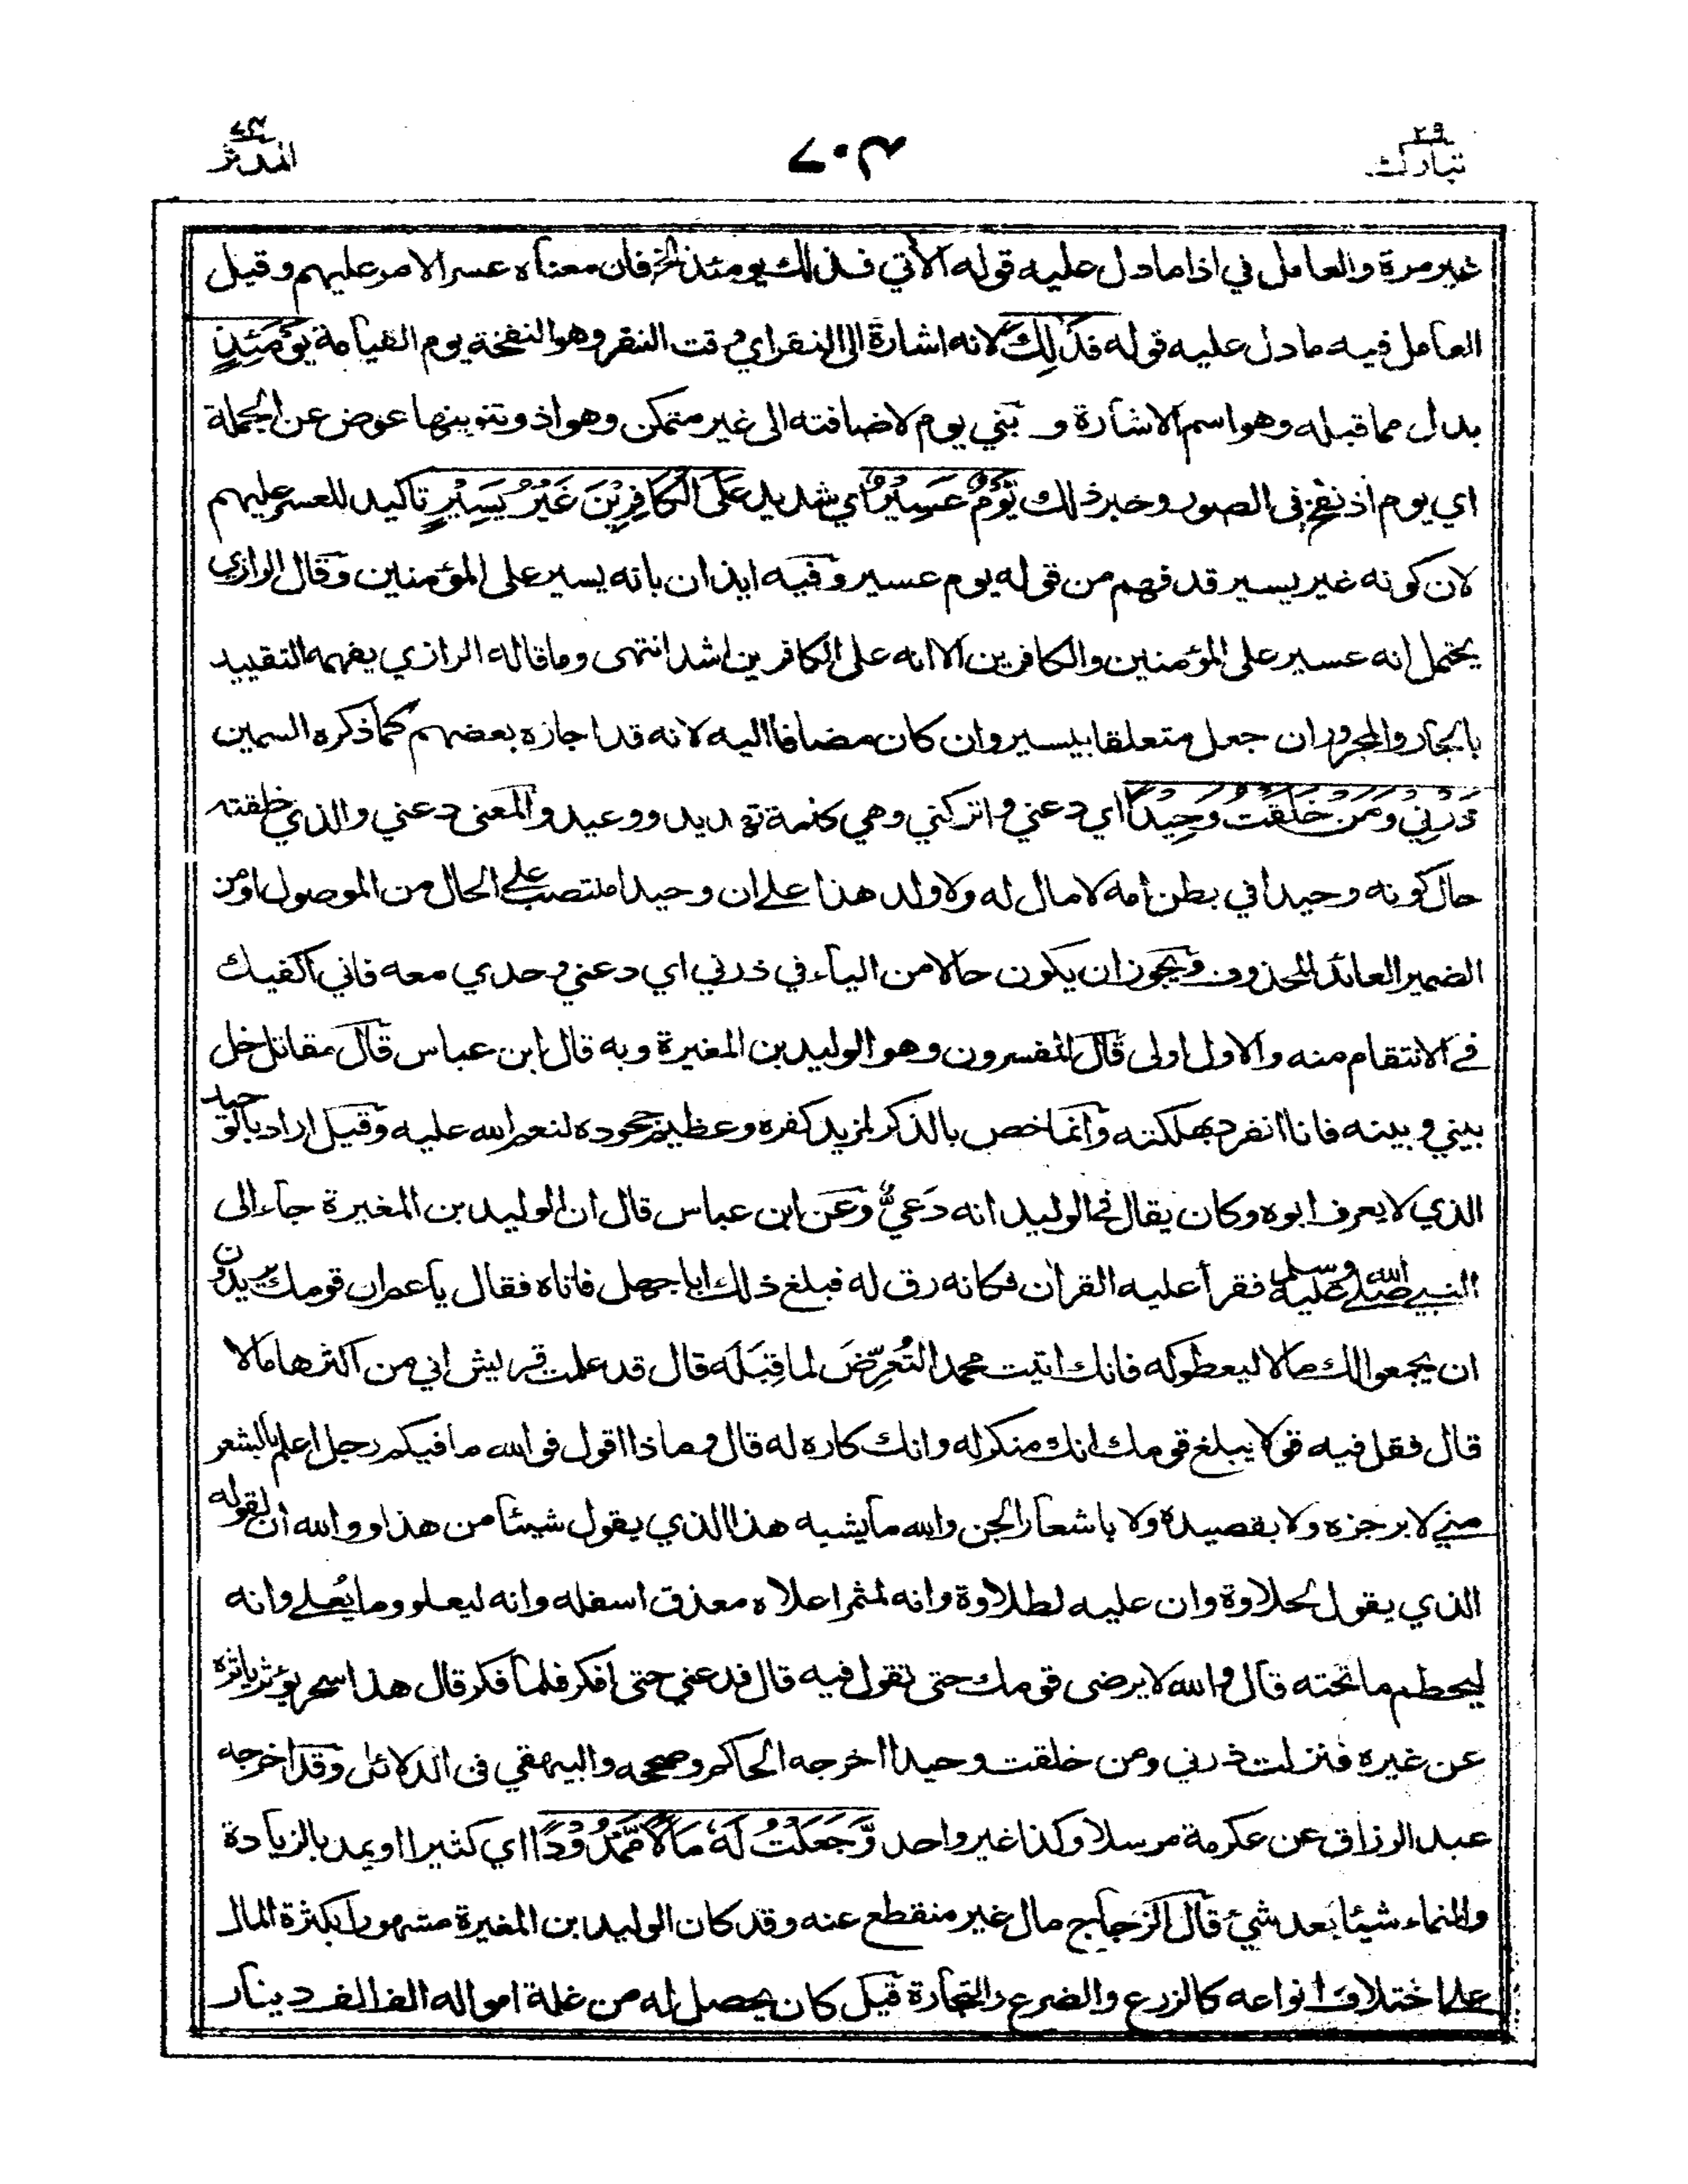 تبارك ٢٩
المدثر ٧٤
غير مرة والعامل في اذا ما دل عليه قوله الآتي فذلك يومئذ الخ فان معناه عسر الامر عليهم وقيل
العامل فيه ما دل عليه قوله فَذٰلِكَ لانه اشارة الى النقر اي وقت النقر وهو النفخة يوم القيامة يَوْمَئِذٍ
بدل مما قبله وهو اسم الاشارة و بني يوم لاضافته الى غير متمكن وهو اذ وتنوينها عوض عن الجملة
اي يوم اذ نفخ في الصور وخبر ذلك يَوْمٌ عَسِيْرٌ اي شديد عَلَى الْكَافِرِيْنَ غَيْرُ يَسِيْرٍ تاكيد للعسر عليهم
لان كونه غير يسير قد فهم من قوله يوم عسير وفيه ايذان بانه يسير على المؤمنين وقال الرازي
يحتمل انه عسير على المؤمنين والكافرين الا انه على الكافرين اشد انتهى وما قاله الرازي يفهمه التقييد
بالجار والمجرور ان جعل متعلقا بيسير وان كان مضافا اليه لانه قد اجازه بعضهم كما ذكره السمين
ذَرْنِي وَمَنْ خَلَقْتُ وَحِيْدًا اي دعني واتركني وهي كلمة تهديد ووعيد والمعنى دعني والذي خلقته
حال كونه وحيدا في بطن امه لا مال له ولا ولد هذا على ان وحيدا منتصب على الحال من الموصول او من
الضمير العائد المحذوف ويجوز ان يكون حالا من الياء في ذرني اي دعني وحدي معه فاني اكفيك
في الانتقام منه والاول اولى قال المفسرون وهو الوليد بن المغيرة وبه قال ابن عباس قال مقاتل خل
بيني وبينه فانا انفرد بهلكته وانما خص بالذكر لمزيد كفره وعظيم جحوده لنعم الله عليه وقيل اراد بالوحيد
الذي لا يعرف ابوه وكان يقال في الوليد انه دَعيٌّ وَعَن ابن عباس قال ان الوليد بن المغيرة جاء الى
النبي صلى الله عليه وسلم فقرأ عليه القرآن فكانه رق له فبلغ ذلك ابا جهل فاتاه فقال يا عم ان قومك يريدون
ان يجمعوا لك مالا ليعطوكه فانك اتيت محمدا لتُعرِّضَ لما قِبَلَه قال قد علمت قريش اني من اكثرها مالا
قال فقل فيه قولا يبلغ قومك انك منكر له وانك كاره له قال وماذا اقول فوالله ما فيكم رجل اعلم بالشعر
مني لا برجزه ولا بقصيدة ولا باشعار الجن والله ما يشبه هذا الذي يقول شيئا من هذا و والله ان لقوله
الذي يقول لحلاوة وان عليه لطلاوة وانه لمثمر اعلاه معذق اسفله وانه ليعلو وما يُعلى وانه
ليحطم ما تحته قال والله لا يرضى قومك حتى تقول فيه قال فدعني حتى افكر فلما فكر قال هذا سحر يؤثر ياثره
عن غيره فنزلت ذرني ومن خلقت وحيدا اخرجه الحاكم وصححه والبيهقي في الدلائل وقد اخرجه
عبد الرزاق عن عكرمة مرسلا وكذا غير واحد وَّجَعَلْتُ لَهٗ مَالًا مَّمْدُوْدًا اي كثيرا او يمد بالزيادة
والنماء شيئا بعد شيئ قال الزجاج مال غير منقطع عنه وقد كان الوليد بن المغيرة مشهورا بكثرة المال
على اختلاف انواعه كالزرع والضرع والتجارة قيل كان يحصل له من غلة امواله الف الف دينار